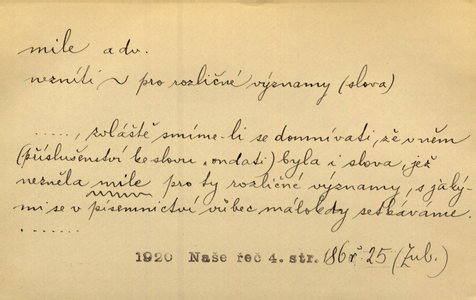 mile adv.
nezníti ~ pro rozličné významy (slova)
....., zvláště smíme-li se domnívati, že v něm
(příslušenství ke slovu „ondati) byla i slova, jež
nezněla mile pro ty rozličné významy, s jaký
mi se v písemnictví vůbec málokdy setkáváme.
.......
1920 Naše řeč 4. str. 186 ř. 25 (Zub.)